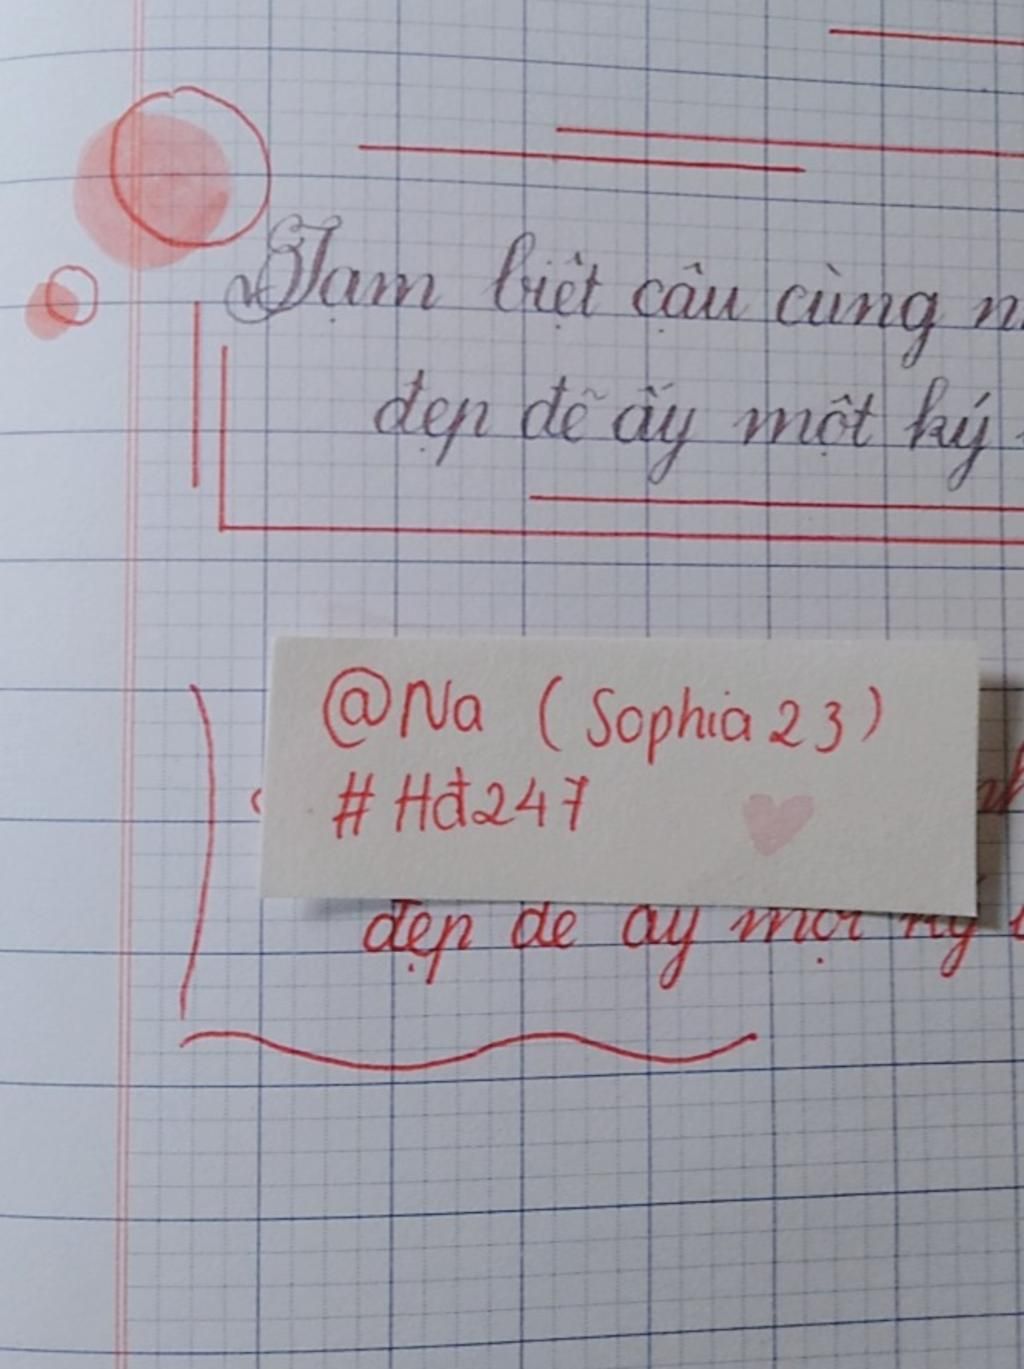 Tạm biệt cậu cùng
đẹp đẽ ấy một ký
@Na (Sophia 23)
#Hđ247
đẹp đẽ ấy một ký